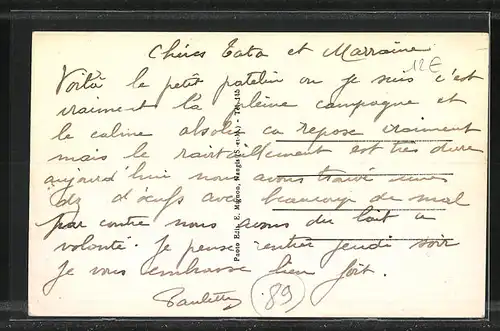 Chères Tata et Marraine
12€
Voilà le petit patelin ou je suis c'est
vraiment la pleine campagne et
le calme absolu ca repose vraiment
mais le ravitaillement est très dure
aujourd'hui nous avons trouvé une
dz d'œufs avec beaucoup de mal
par contre nous avons du lait a
volonté. Je pense rentrer jeudi soir
Je vous embrasse bien fort.
Paulette
89
Photo Edit. E. Mignon, Nangis (S.-et-M.)